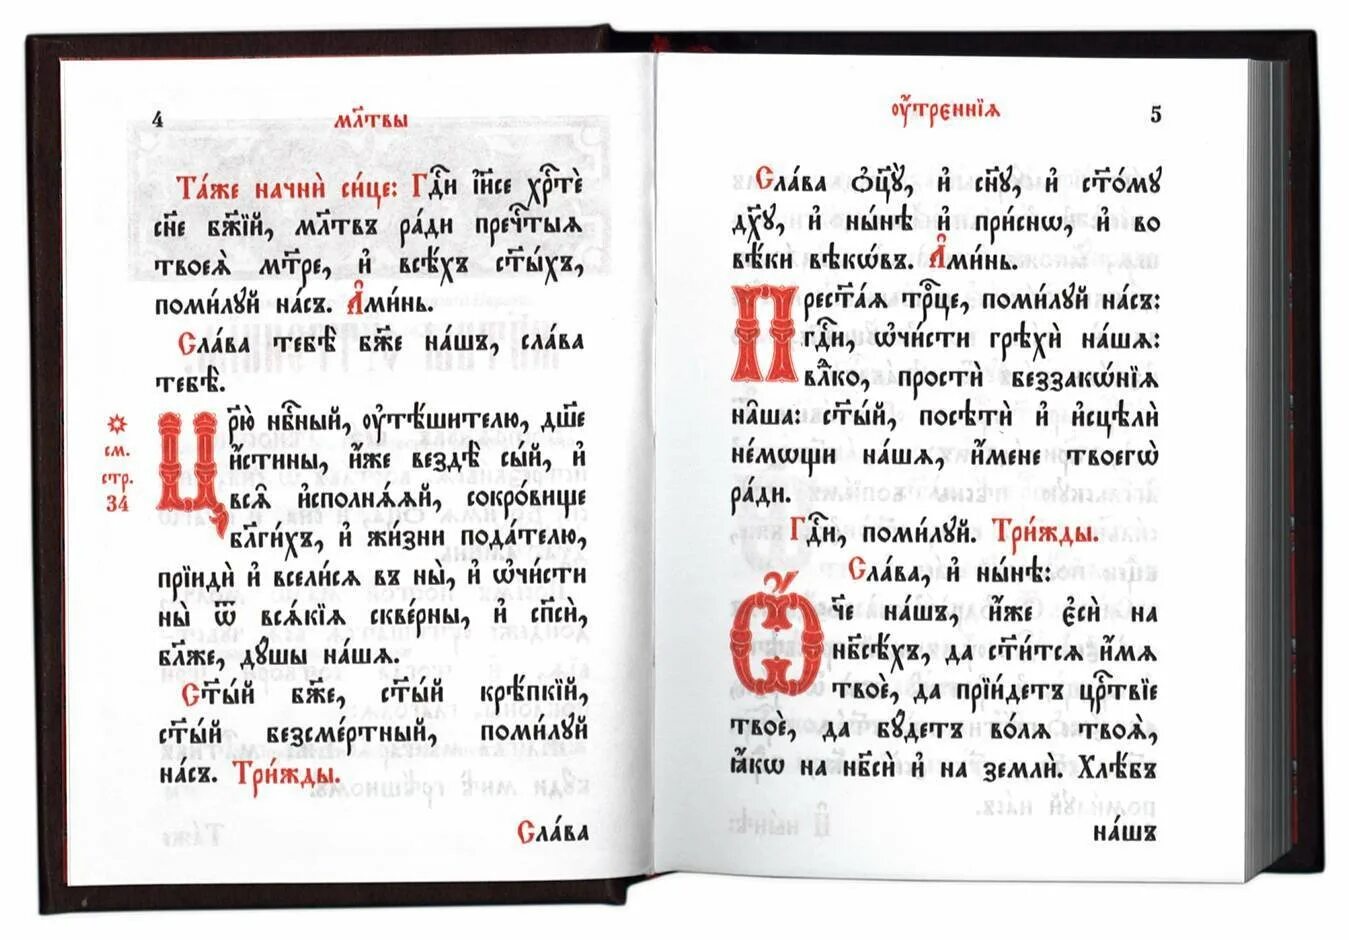 4
мл҃твы
Та́же начнѝ си́це: Гдⷭ҇и і҆и҃се хрⷭ҇тѐ
сн҃е бж҃їй, мл҃твъ ра́ди пречⷭ҇тыѧ
твоеѧ̀ мт҃ре, и҆ всѣ́хъ ст҃ы́хъ,
поми́лꙋй на́съ. А҆ми́нь.
Сла́ва тебѣ̀ бж҃е нашъ, сла́ва
тебѣ̀.
Цр҃ю̀ нбⷭ҇ный, ᲂу҆тѣ́шителю, дш҃е
и҆́стины, и҆́же вездѣ̀ сы́й, и҆
всѧ̑ и҆сполнѧ́ѧй, сокро́вище
бл҃ги́хъ, и҆ жи́зни пода́телю,
прїидѝ и҆ всели́сѧ въ ны̀, и҆ ѡ҆чи́сти
ны̀ ѿ всѧ́кїѧ скве́рны, и҆ сп҃сѝ,
бл҃же, дꙋ́шы на́шѧ.
Ст҃ы́й бж҃е, ст҃ы́й крѣ́пкїй,
ст҃ы́й безсме́ртный, поми́лꙋй
на́съ. Три́жды.
☼
см.
стр.
34
Сла́ва
ᲂу҆́треннїѧ
5
Сла́ва ѻ҆ц҃ꙋ̀, и҆ сн҃ꙋ, и҆ ст҃о́мꙋ
дх҃ꙋ, и҆ ны́нѣ и҆ при́снѡ, и҆ во
вѣ́ки вѣкѡ́въ. А҆ми́нь.
Прест҃а́ѧ трⷪ҇це, поми́лꙋй на́съ:
гдⷭ҇и, ѡ҆чи́сти грѣхѝ на́шѧ:
влⷣко, простѝ беззакѡ́нїѧ
на̑ша: ст҃ы́й, посѣтѝ и҆ и҆сцѣлѝ
не́мѡщи на́шѧ, и҆́мене твоегѡ̀
ра́ди.
Гдⷭ҇и, поми́лꙋй. Три́жды.
Сла́ва, и҆ ны́нѣ:
Ѻ҆́ч҃е на́шъ, и҆́же є҆сѝ на
нб҃сѣ́хъ, да ст҃и́тсѧ и҆́мѧ
твоѐ, да прїи́детъ црⷭ҇твїе
твоѐ, да бꙋ́детъ во́лѧ твоѧ̀,
ꙗ҆́кѡ на нб҃сѝ и҆ на землѝ. Хлѣ́бъ
на́шъ